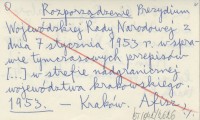 Rozporządzenie Prezydium
Wojewódzkiej Rady Narodowej z
dnia 7 stycznia 1953 r. w spra-
wie tymczasowych przepisów
[...] w strefie nadgranicznej
województwa krakowskiego.
1953. — Kraków. Afisz.